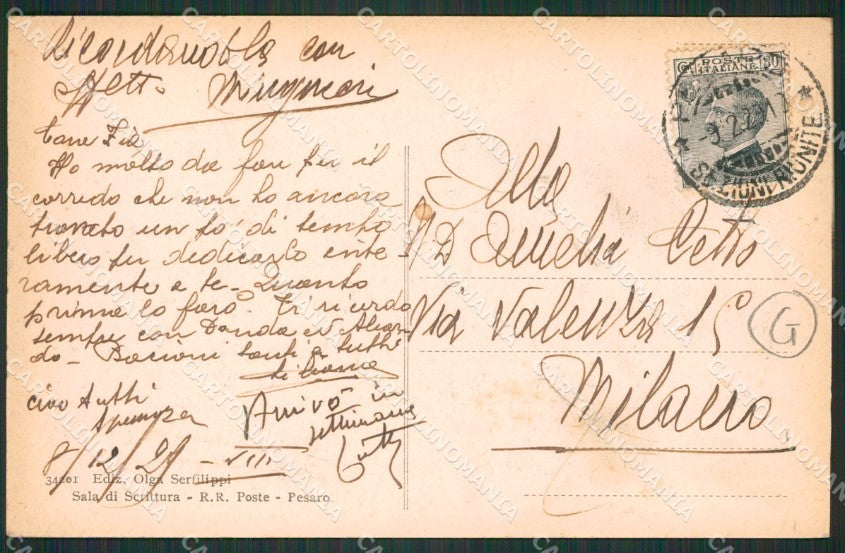 Ricordandola con
affetto Mingucci
Care Zia
Ho molto da fare per il
corredo che non ho ancora
trovato un po' di tempo
libero per dedicarlo inte-
ramente a te. Quanto
prima lo farò. Ti ricordo
sempre con Wanda ed Alvar-
do - Bacioni tanti a tutti
Liliana
ciao tutti
Arrivo in
settimana
8/12/29 - VIII
34201 Ediz. Olga Serfilippi
Sala di Scrittura - R.R. Poste - Pesaro
POSTE
ITALIANE
30
SEZIONI RIUNITE
Alla
N D Amelia Cetto
Via Valenza 15
Milano
G
CARTOLINOMANIA